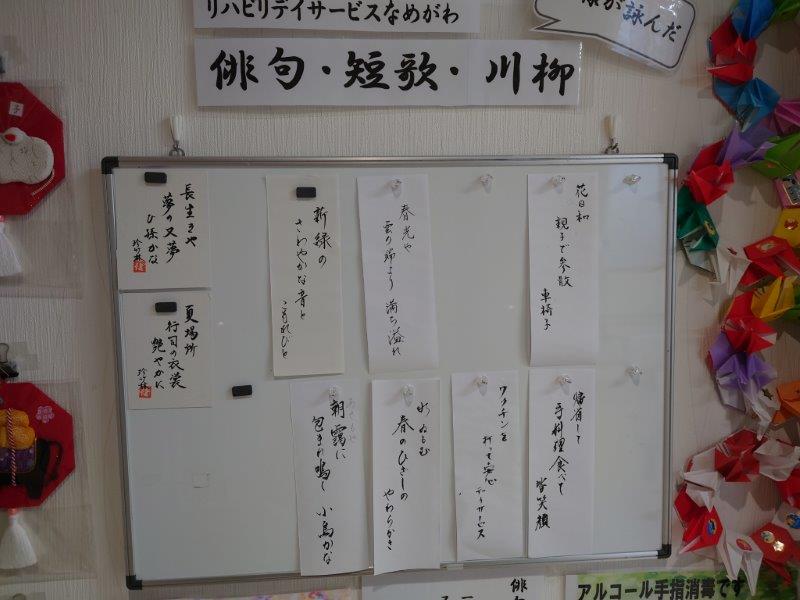 リハビリデイサービスなめがわ
が詠んだ
俳句・短歌・川柳
花日和
親子で参散
車椅子
春光や
雲の端より
満ち溢れ
新緑の
さわやかな音と
こもれびと
長生きや
夢の又夢
ひ孫かな
夏場所
行司の衣装
艶やかに
帰省して
手料理食べて
皆笑顔
ワクチンを
打って安心
デイサービス
水ぬるむ
春のひざしの
やわらかき
朝靄に
包まれ鳴く
小鳥かな
子
俳句
アルコール手指消毒です